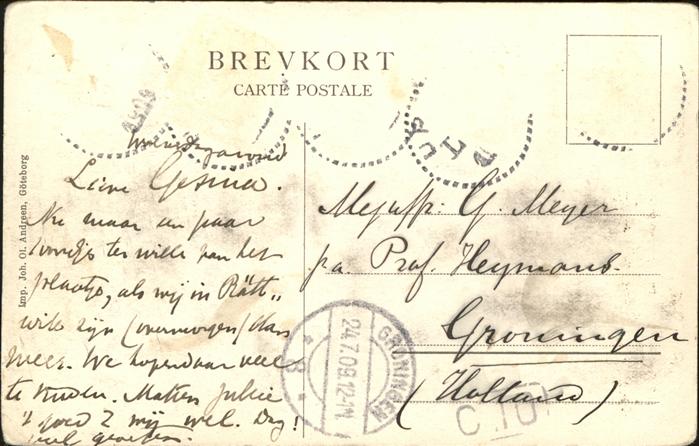 BREVKORT
CARTE POSTALE
Woensdagavond
Lieve Gesina.
Nu maar een paar
woordjes ter wille van het
plaatje, als wij in Rätt„
wik zijn (overmorgen) dan
meer. We hopen daar veel
te vinden. Maken jullie
't goed? Wij wel. Dag!
veel groeten.
Mejuffr. G. Meyer
pa. Prof. Heymans.
Groningen
(Holland)
GRONINGEN
24.7.09.12-1N
8
C.10
Imp. Joh. Ol. Andreen, Göteborg